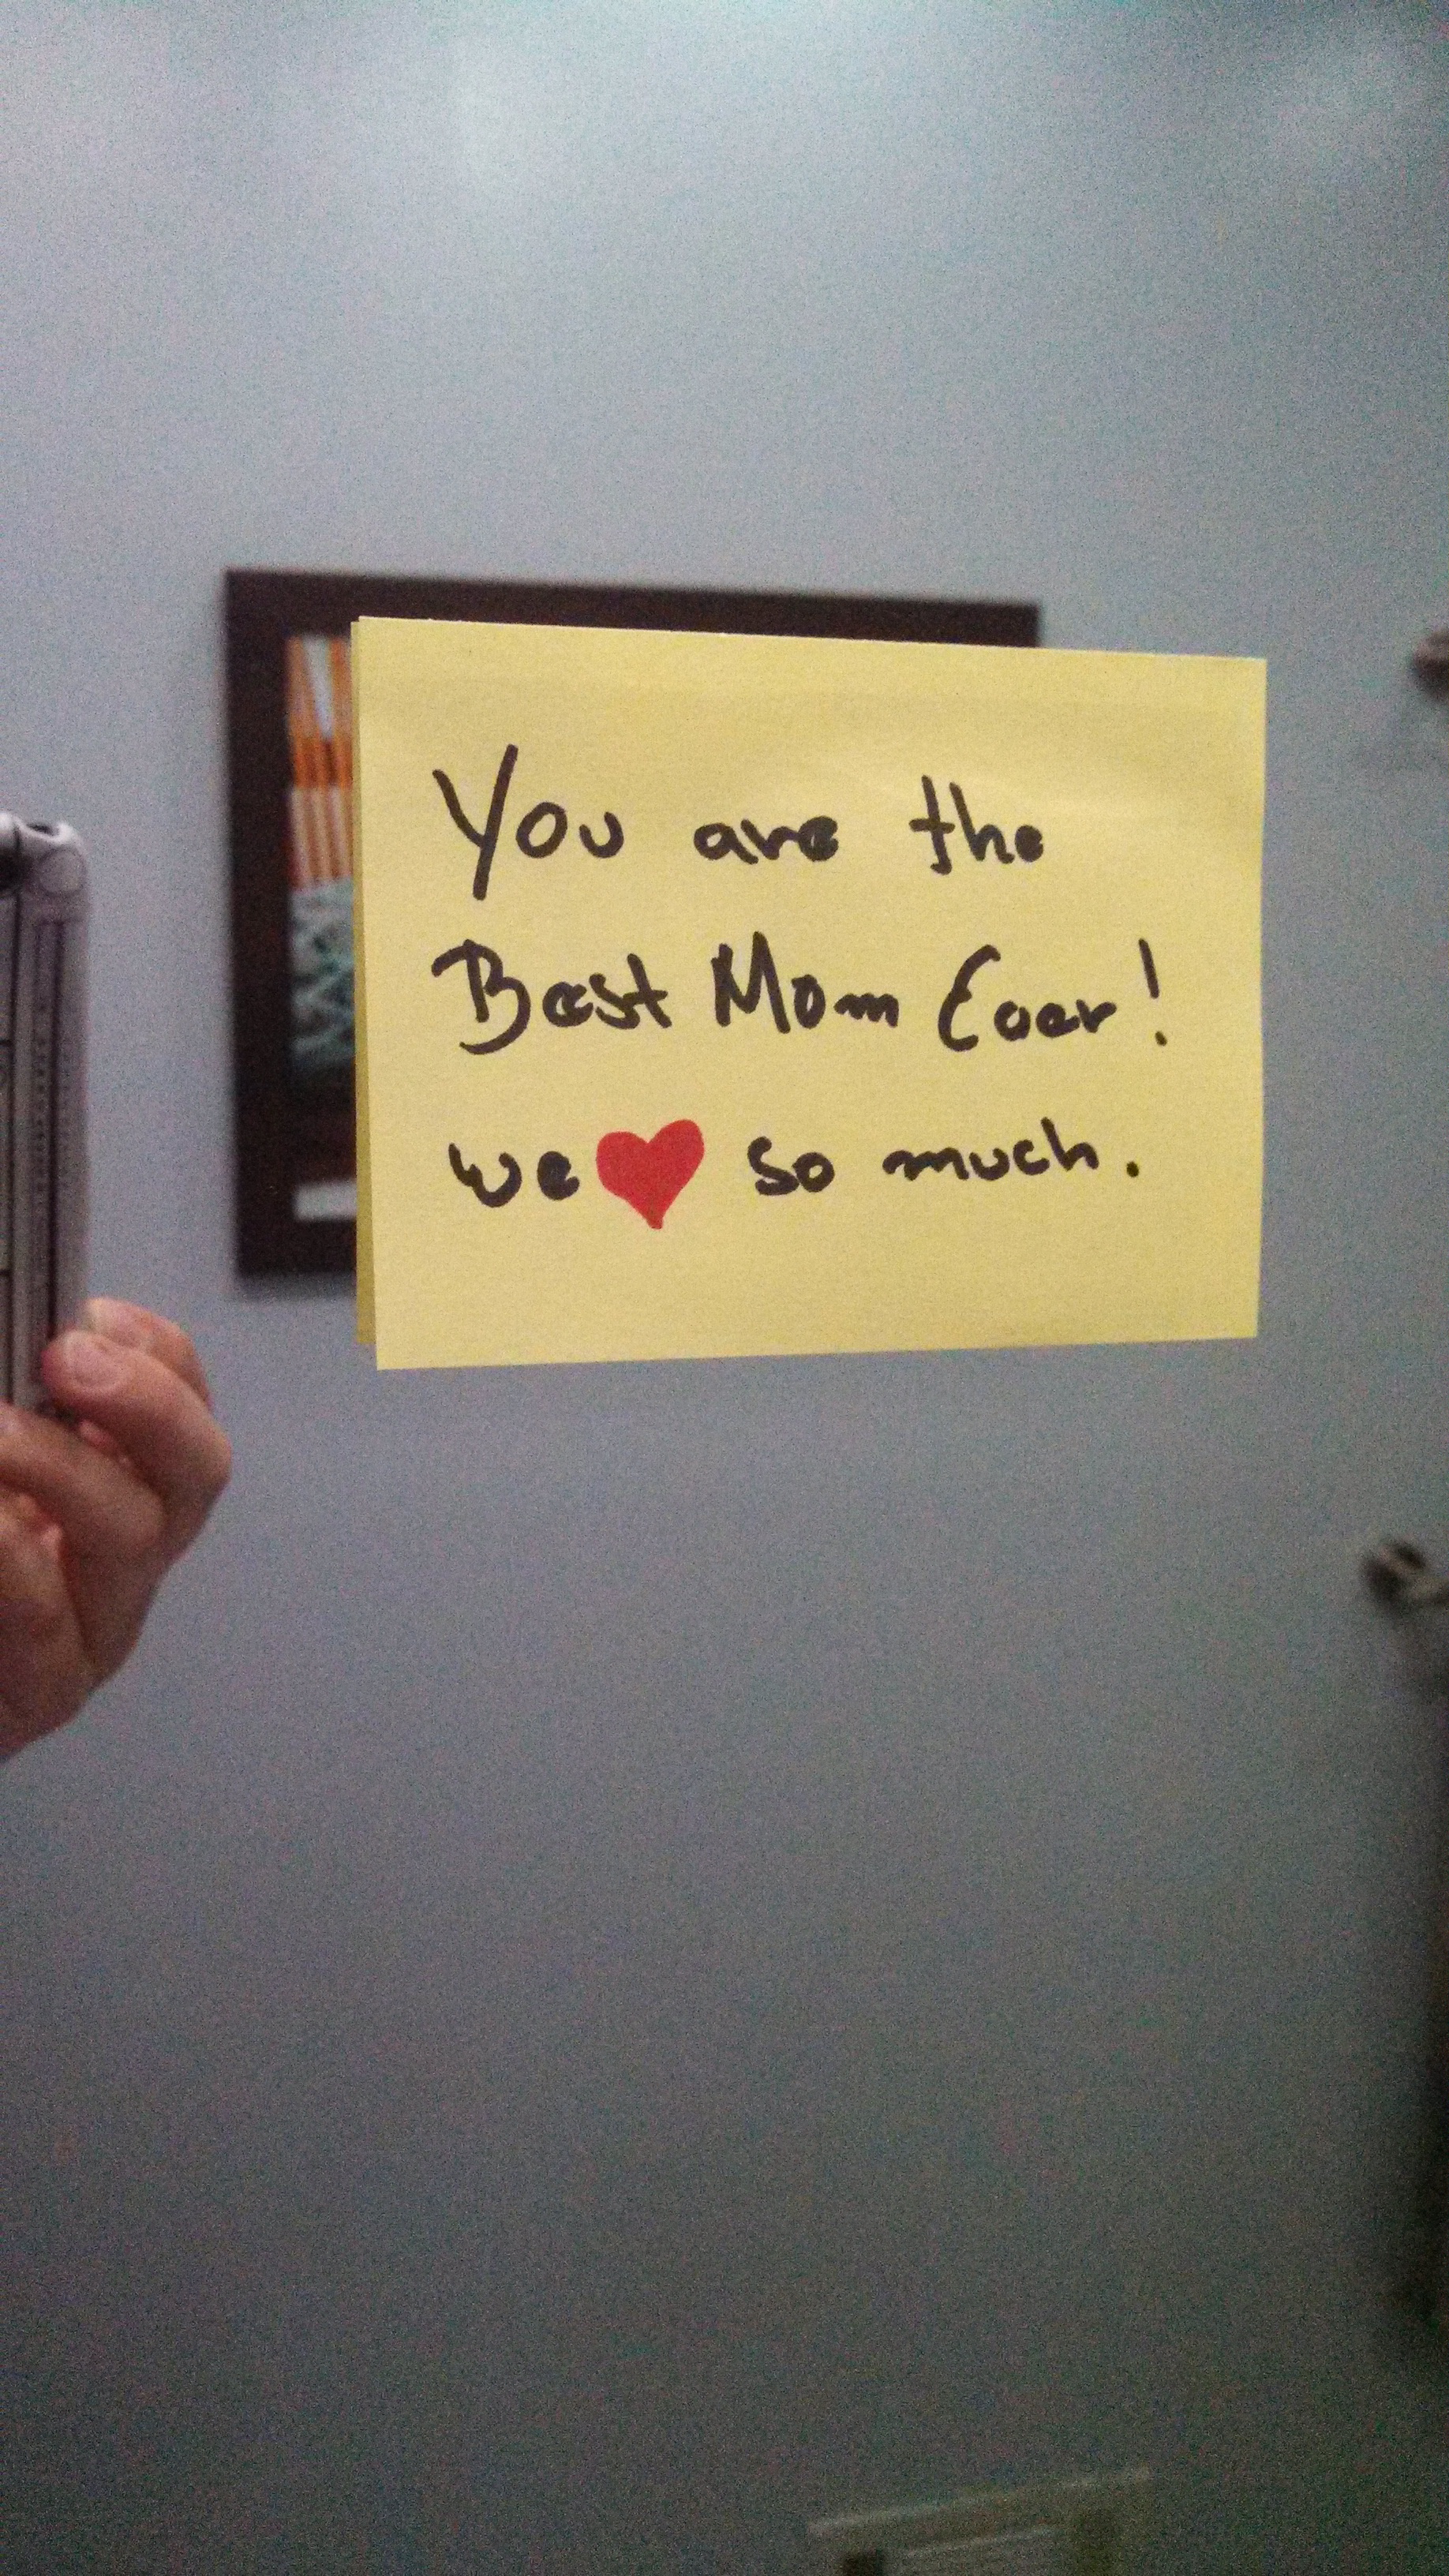 You are the
Best Mom Ever!
we ❤ so much.